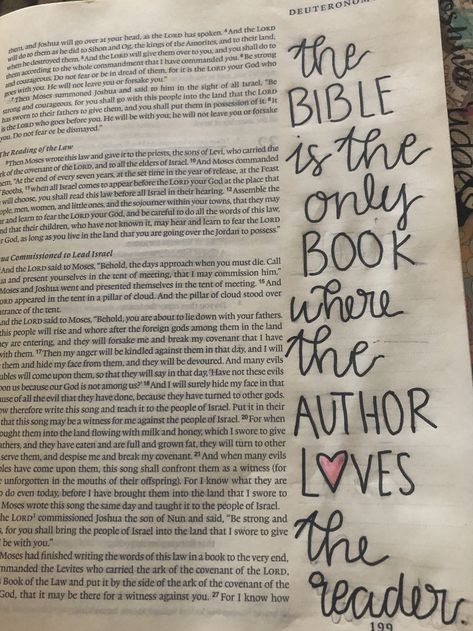 DEUTERONOM
them, and Joshua will go over at your head, as the LORD has spoken. 4And the LORD
will do to them as he did to Sihon and Og, the kings of the Amorites, and to their land,
when he destroyed them. 5And the LORD will give them over to you, and you shall do to
them according to the whole commandment that I have commanded you. 6Be strong
and courageous. Do not fear or be in dread of them, for it is the LORD your God who
goes with you. He will not leave you or forsake you."
7Then Moses summoned Joshua and said to him in the sight of all Israel, "Be
strong and courageous, for you shall go with this people into the land that the LORD
has sworn to their fathers to give them, and you shall put them in possession of it. 8It
is the LORD who goes before you. He will be with you; he will not leave you or forsake
you. Do not fear or be dismayed."
The Reading of the Law
9Then Moses wrote this law and gave it to the priests, the sons of Levi, who carried the
ark of the covenant of the LORD, and to all the elders of Israel. 10And Moses commanded
them, "At the end of every seven years, at the set time in the year of release, at the Feast
Booths, 11when all Israel comes to appear before the LORD your God at the place that
will choose, you shall read this law before all Israel in their hearing. 12Assemble the
ople, men, women, and little ones, and the sojourner within your towns, that they may
ar and learn to fear the LORD your God, and be careful to do all the words of this law,
nd that their children, who have not known it, may hear and learn to fear the LORD
r God, as long as you live in the land that you are going over the Jordan to possess."
ua Commissioned to Lead Israel
And the LORD said to Moses, "Behold, the days approach when you must die. Call
ua and present yourselves in the tent of meeting, that I may commission him."
Moses and Joshua went and presented themselves in the tent of meeting. 15And
LORD appeared in the tent in a pillar of cloud. And the pillar of cloud stood over
entrance of the tent.
And the LORD said to Moses, "Behold, you are about to lie down with your fathers.
this people will rise and whore after the foreign gods among them in the land
ey are entering, and they will forsake me and break my covenant that I have
with them. 17Then my anger will be kindled against them in that day, and I will
them and hide my face from them, and they will be devoured. And many evils
ubles will come upon them, so that they will say in that day, 'Have not these evils
pon us because our God is not among us?' 18And I will surely hide my face in that
use of all the evil that they have done, because they have turned to other gods.
ow therefore write this song and teach it to the people of Israel. Put it in their
that this song may be a witness for me against the people of Israel. 20For when
ought them into the land flowing with milk and honey, which I swore to give
athers, and they have eaten and are full and grown fat, they will turn to other
serve them, and despise me and break my covenant. 21And when many evils
bles have come upon them, this song shall confront them as a witness (for
e unforgotten in the mouths of their offspring). For I know what they are
o do even today, before I have brought them into the land that I swore to
Moses wrote this song the same day and taught it to the people of Israel.
the LORD commissioned Joshua the son of Nun and said, "Be strong and
s, for you shall bring the people of Israel into the land that I swore to give
be with you."
Moses had finished writing the words of this law in a book to the very end,
mmanded the Levites who carried the ark of the covenant of the LORD,
s Book of the Law and put it by the side of the ark of the covenant of the
God, that it may be there for a witness against you. 27For I know how
the
BIBLE
is the
only
BOOK
where
the
AUTHOR
LOVES
the
reader.
199